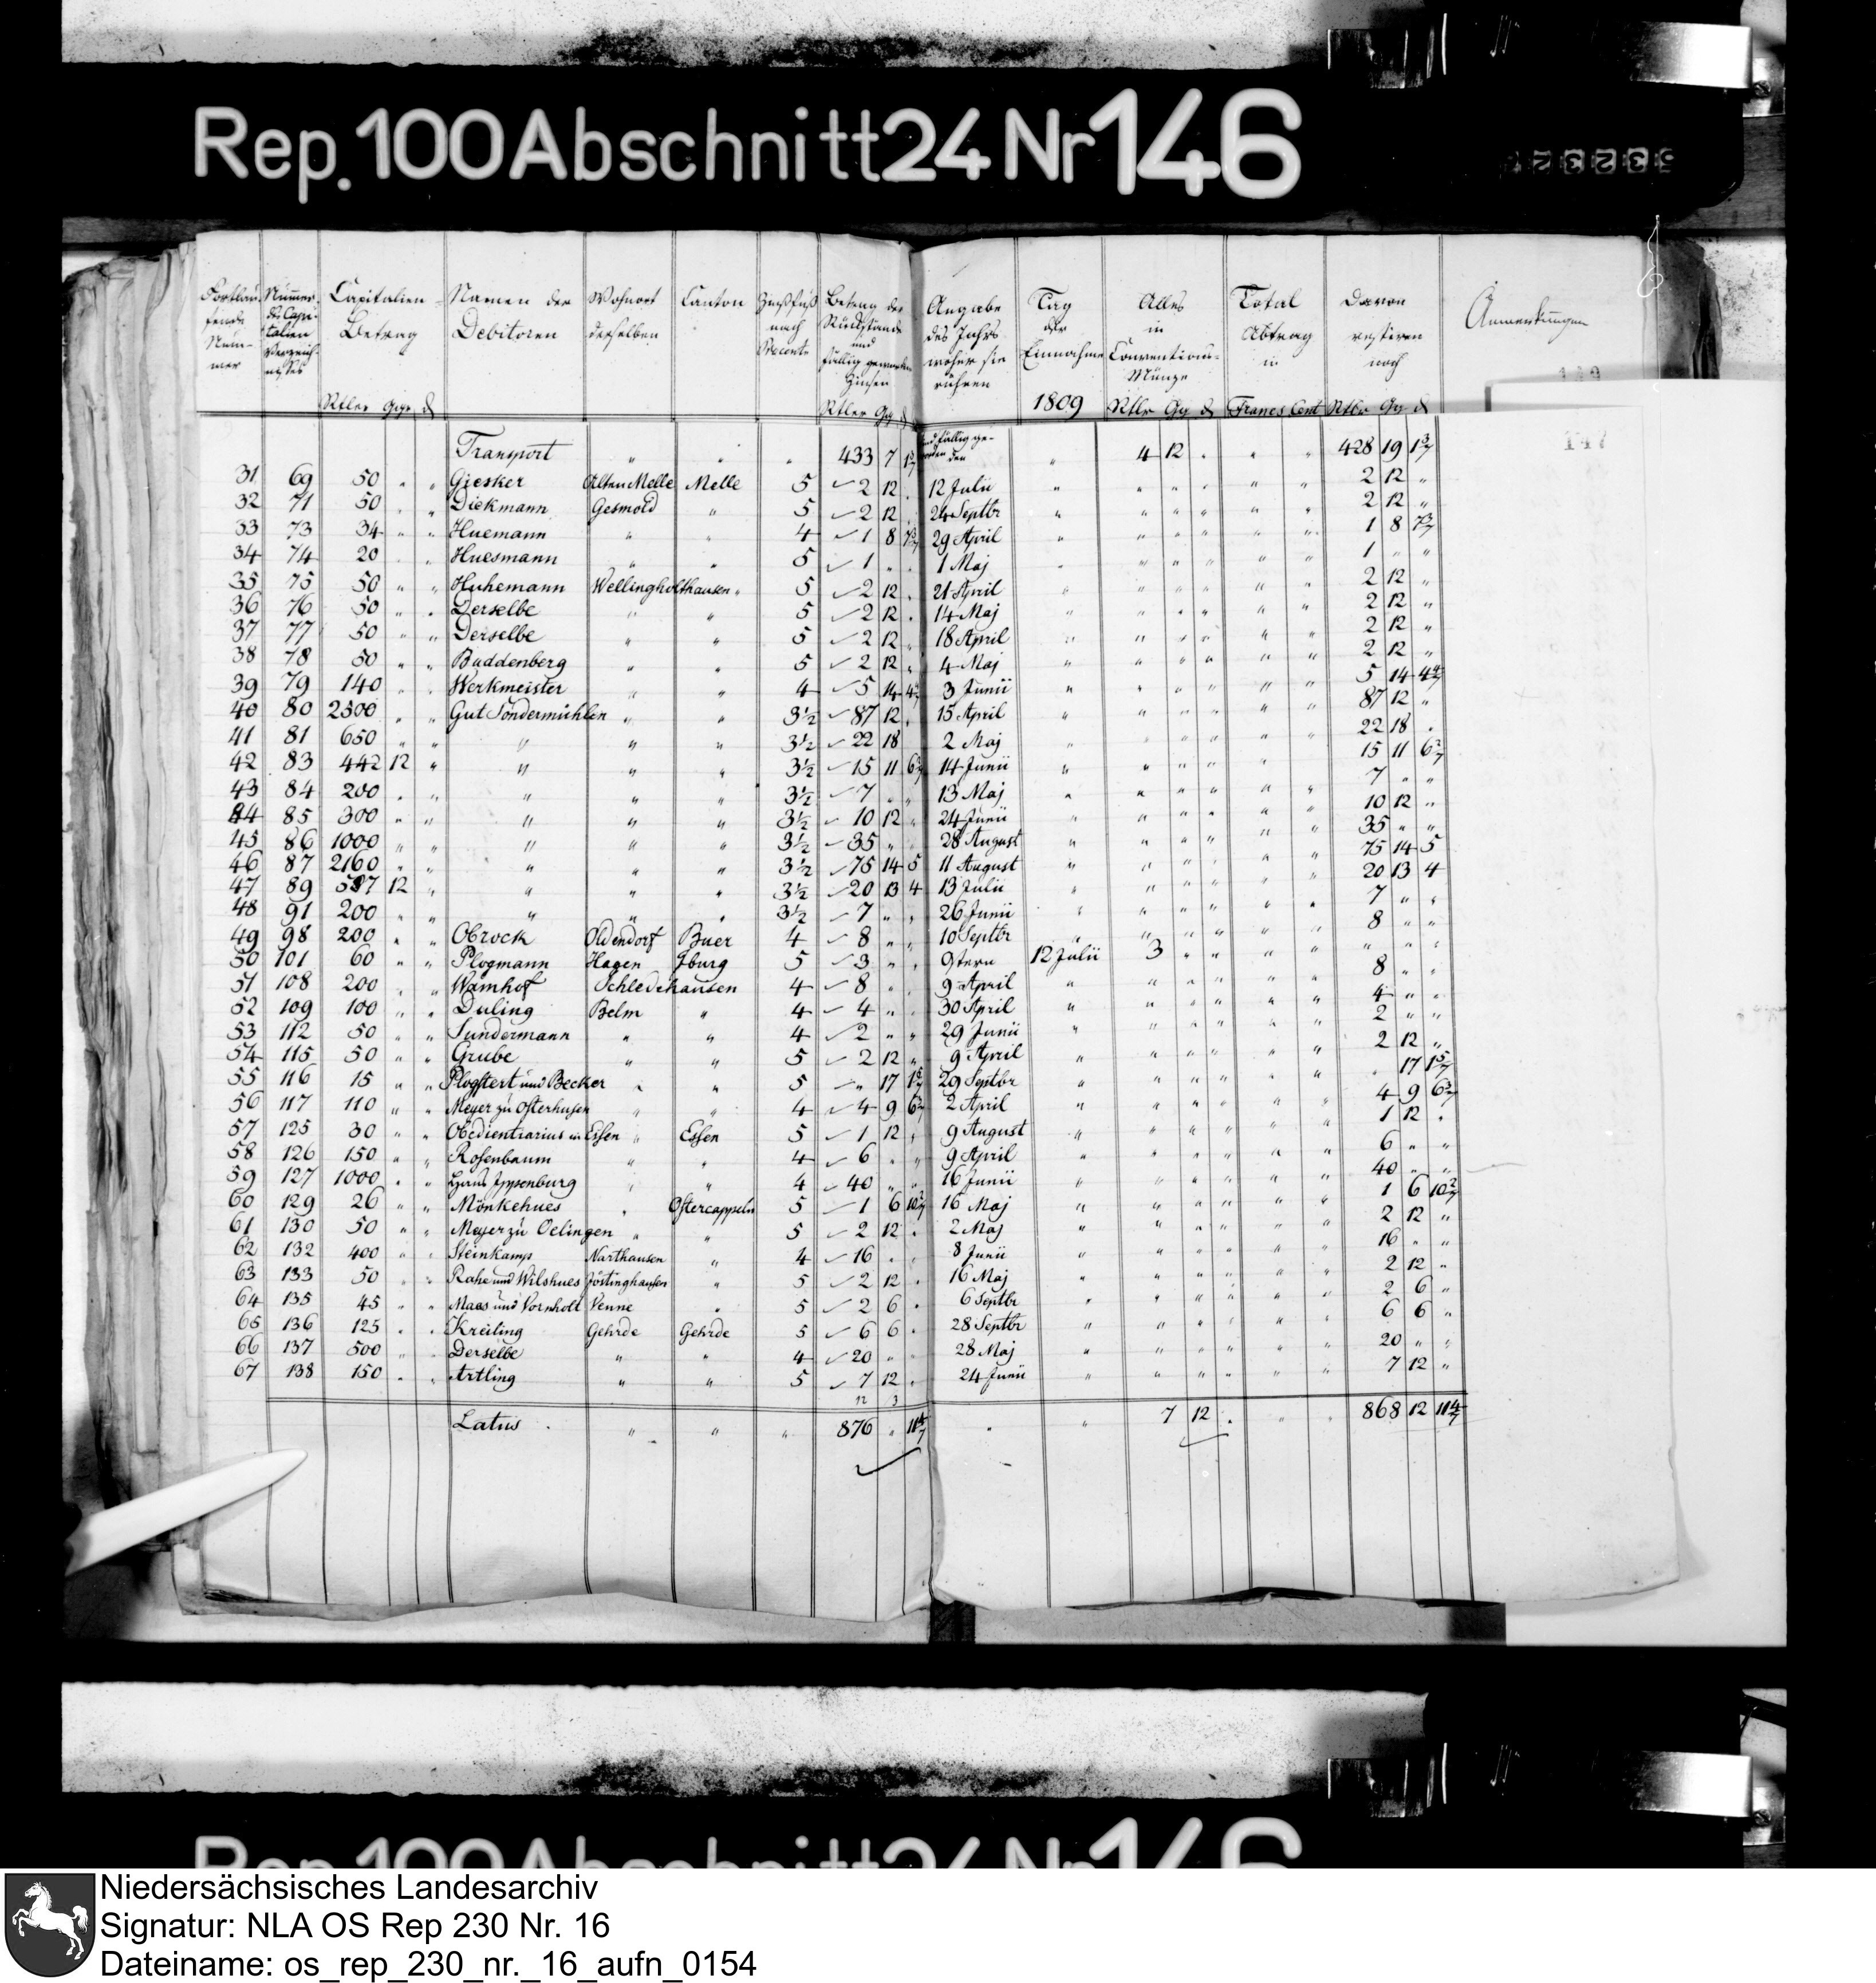 Rep. 100 Abschnitt 24 Nr 146
Fortlaufende Nummer | Nummer des Capitalien Verzeichnisses | Capitalien-Betrag | Namen der Debitoren | Wohnort derselben | Canton | Zinsfuß nach Procent | Betrag der Rückstände und fällig gewordenen Zinsen | Angabe des Jahrs woher sie rühren | Tag der Einnahme | Alles in Conventions-Münze | Total Abtrag in | Davon restiren noch | Anmerkungen
Rtler Ggr ₰ | Rtler Gg ₰ | 1809 | Rtlr Gg ₰ | Francs Cent | Rtlr Gg ₰
Transport " " " 433 7 1 3/7 sind fällig geworden den " 4 12 . " " 428 19 1 3/7
31 69 50 " " Giesker Alten Melle Melle 5 2 12 . 12 Julii " " " " " " 2 12 "
32 71 50 " " Diekmann Gesmold " 5 2 12 . 24 Septbr " " " " " " 2 12 "
33 73 34 " " Huemann " " 4 1 8 7 3/7 29 April " " " " " " 1 8 7 3/7
34 74 20 " " Huesmann " " 5 1 " . 1 Maj " " " " " " 1 " "
35 75 50 " " Huhemann Wellingholthausen " 5 2 12 . 21 April " " " " " " 2 12 "
36 76 50 " " Derselbe " " 5 2 12 . 14 Maj " " " " " " 2 12 "
37 77 50 " " Derselbe " " 5 2 12 " 18 April " " " " " " 2 12 "
38 78 50 " " Buddenberg " " 5 2 12 " 4 Maj " " " " " " 2 12 "
39 79 140 " " Werkmeister " " 4 5 14 4 4/7 3 Junii " " " " " " 5 14 4 4/7
40 80 2500 " " Gut Sondermühlen " " 3½ 87 12 . 15 April " " " " " " 87 12 "
41 81 650 " " " " " 3½ 22 18 2 Maj " " " " " " 22 18 .
42 83 442 12 " " " " 3½ 15 11 6 2/7 14 Junii " " " " " " 15 11 6 2/7
43 84 200 " " " " " 3½ 7 " " 13 Maj " " " " " " 7 " "
44 85 300 " " " " " 3½ 10 12 " 24 Junii " " " " " " 10 12 "
45 86 1000 " " " " " 3½ 35 " " 28 August " " " " " " 35 " "
46 87 2160 " " " " " 3½ 75 14 5 11 August " " " " " " 75 14 5
47 89 587 12 " " " " 3½ 20 13 4 13 Julii " " " " " " 20 13 4
48 91 200 " " " " " 3½ 7 " " 26 Junii " " " " " " 7 " "
49 98 200 " " Obrock Oldendorf Buer 4 8 " " 10 Septbr " " " " " " 8 " "
50 101 60 " " Plogmann Hagen Iburg 5 3 " " Ostern 12 Julii 3 " " " " " " "
51 108 200 " " Wamhof Schledehausen 4 8 " . 9 April " " " " " " 8 " "
52 109 100 " " Duling Belm " 4 4 " . 30 April " " " " " " 4 " "
53 112 50 " " Sundermann " " 4 2 " " 29 Junii " " " " " " 2 " "
54 115 50 " " Grube " " 5 2 12 " 9 April " " " " " " 2 12 "
55 116 15 " " Plogstert und Becker " " 5 " 17 1 5/7 29 Septbr " " " " " " . 17 1 5/7
56 117 110 " " Meyer zu Osterhusen " " 4 4 9 6 6/7 2 April " " " " " " 4 9 6 6/7
57 125 30 " " Obedientiarius in Essen " Essen 5 1 12 " 9 August " " " " " " 1 12 .
58 126 150 " " Rosenbaum " " 4 6 " " 9 April " " " " " " 6 " "
59 127 1000 " " Haus Ippenburg " " 4 40 " " 16 Junii " " " " " " 40 " "
60 129 26 " " Mönkehues " Ostercappeln 5 1 6 10 2/7 16 Maj " " " " " " 1 6 10 2/7
61 130 50 " " Meyer zu Oelingen " " 5 2 12 . 2 Maj " " " " " " 2 12 "
62 132 400 " " Steinkamp Narthausen " 4 16 " . 8 Junii " " " " " " 16 " "
63 133 50 " " Rahe und Wilshues Jöstinghausen " 5 2 12 . 16 Maj " " " " " " 2 12 "
64 135 45 " " Maas und Vornholt Venne " 5 2 6 . 6 Septbr " " " " " " 2 6 "
65 136 125 " " Kreiling Gehrde Gehrde 5 6 6 . 28 Septbr " " " " " " 6 6 "
66 137 500 " " Derselbe " " 4 20 " " 28 Maj " " " " " " 20 " "
67 138 150 " " Artling " " 5 7 12 . 24 Junii " " " " " " 7 12 "
12 3
Latus . " " " 876 " 11 4/7 " " 7 12 . " " 868 12 11 4/7
Niedersächsisches Landesarchiv
Signatur: NLA OS Rep 230 Nr. 16
Dateiname: os_rep_230_nr._16_aufn_0154